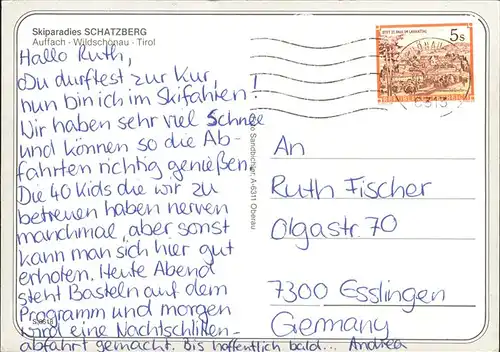 Skiparadies SCHATZBERG
Auffach - Wildschönau - Tirol
Hallo Ruth,
Du durftest zur Kur,
nun bin ich im Skifahren!
Wir haben sehr viel Schnee
und können so die Ab-
fahrten richtig genießen.
Die 40 Kids die wir zu
betreuen haben nerven
manchmal, aber sonst
kann man sich hier gut
erholen. Heute Abend
steht Basteln auf dem
Programm und morgen
wird eine Nachtschlitten-
abfahrt gemacht. Bis hoffentlich bald... Andrea
Sandbichler, A-6311 Oberau
5 S
6313
An
Ruth Fischer
Olgastr. 70
7300 Esslingen
Germany